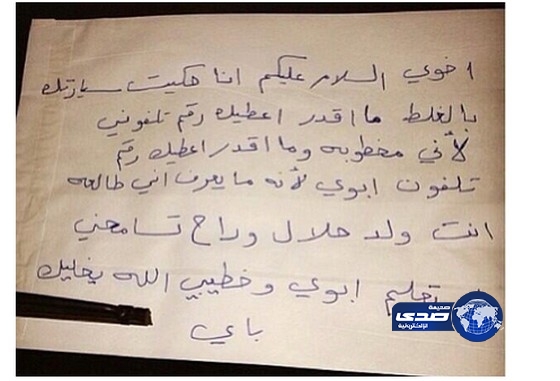 اخوي السلام عليكم انا هكيت سيارتك
بالغلط ما اقدر اعطيك رقم تلفوني
لأني مخطوبه وما اقدر اعطيك رقم
تلفون ابوي لأنه ما يعرف اني طالعه
انت ولد حلال وراح تسامحني
تعليم ابوي وخطيبي الله يخليك
باي
صحيفة
صدى
الإلكترونية